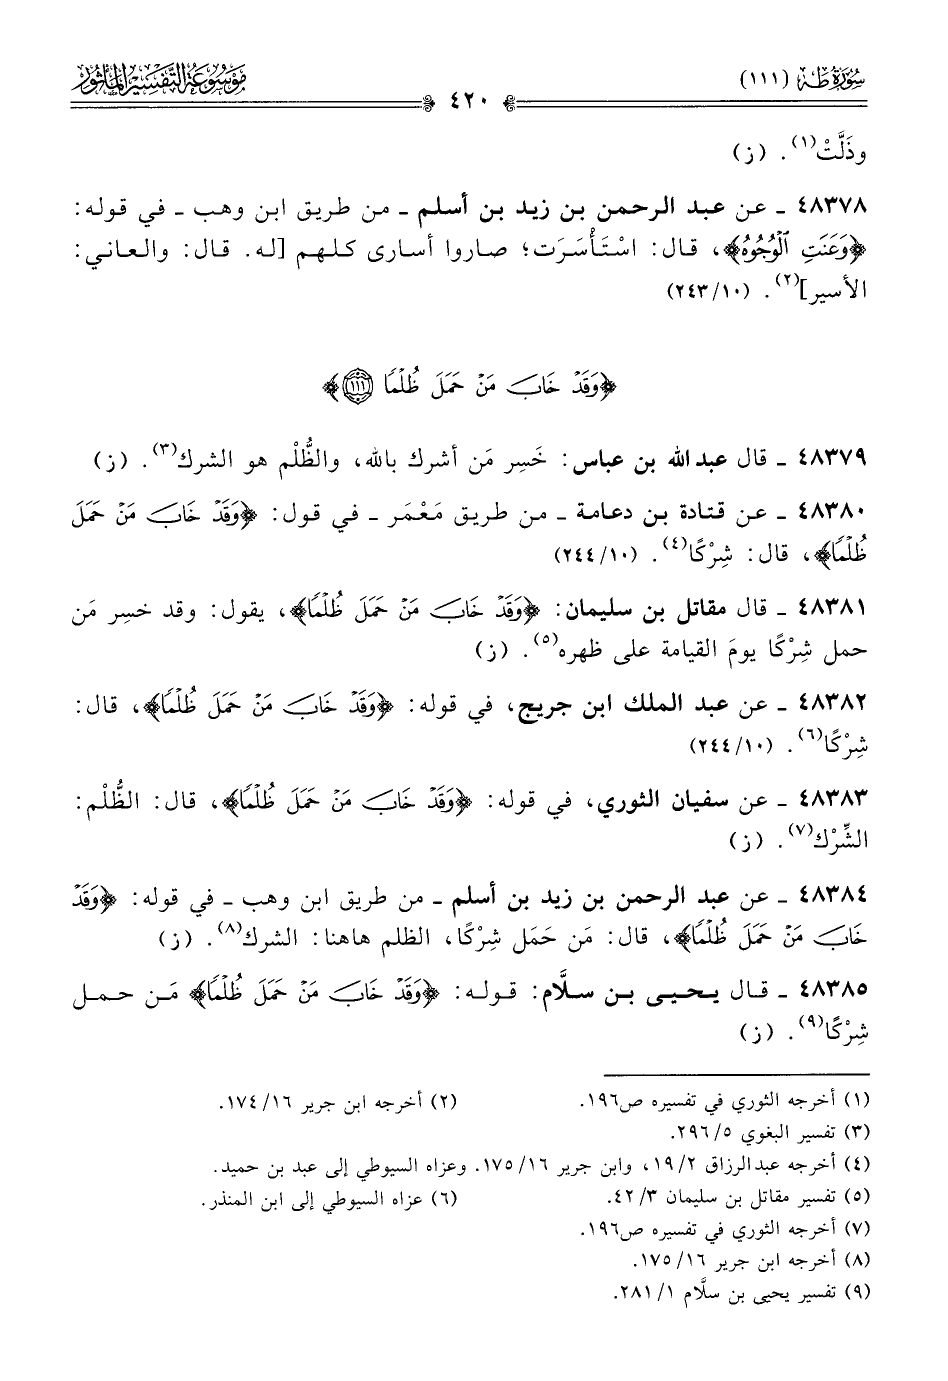 سُورَةُ طه (١١١)
٤٢٠
مَوْسُوعَةُ التَّفْسِيرِ المَأْثُور
وذَلَّتْ(١). (ز)
٤٨٣٧٨ ـ عن عبد الرحمن بن زيد بن أسلم ـ من طريق ابن وهب ـ في قوله:
﴿وَعَنَتِ ٱلْوُجُوهُ﴾، قال: اسْتَأْسَرَت؛ صاروا أسارى كلهم [له. قال: والعاني:
الأسير](٢). (١٠/٢٤٣)
﴿وَقَدْ خَابَ مَنْ حَمَلَ ظُلْمًا ١١١﴾
٤٨٣٧٩ ـ قال عبد الله بن عباس: خَسِر مَن أشرك بالله، والظُّلْم هو الشرك(٣). (ز)
٤٨٣٨٠ ـ عن قتادة بن دعامة ـ من طريق مَعْمَر ـ في قول: ﴿وَقَدْ خَابَ مَنْ حَمَلَ
ظُلْمًا﴾، قال: شِرْكًا(٤). (١٠/٢٤٤)
٤٨٣٨١ ـ قال مقاتل بن سليمان: ﴿وَقَدْ خَابَ مَنْ حَمَلَ ظُلْمًا﴾، يقول: وقد خسِر مَن
حمل شِرْكًا يومَ القيامة على ظهره(٥). (ز)
٤٨٣٨٢ ـ عن عبد الملك ابن جريج، في قوله: ﴿وَقَدْ خَابَ مَنْ حَمَلَ ظُلْمًا﴾، قال:
شِرْكًا(٦). (١٠/٢٤٤)
٤٨٣٨٣ ـ عن سفيان الثوري، في قوله: ﴿وَقَدْ خَابَ مَنْ حَمَلَ ظُلْمًا﴾، قال: الظُّلْم:
الشِّرْك(٧). (ز)
٤٨٣٨٤ ـ عن عبد الرحمن بن زيد بن أسلم ـ من طريق ابن وهب ـ في قوله: ﴿وَقَدْ
خَابَ مَنْ حَمَلَ ظُلْمًا﴾، قال: مَن حَمَل شِرْكًا، الظلم هاهنا: الشرك(٨). (ز)
٤٨٣٨٥ ـ قال يحيى بن سلَّام: قوله: ﴿وَقَدْ خَابَ مَنْ حَمَلَ ظُلْمًا﴾ مَن حمل
شِرْكًا(٩). (ز)
(١) أخرجه الثوري في تفسيره ص١٩٦. (٢) أخرجه ابن جرير ١٦/١٧٤.
(٣) تفسير البغوي ٥/٢٩٦.
(٤) أخرجه عبدالرزاق ٢/١٩، وابن جرير ١٦/١٧٥. وعزاه السيوطي إلى عبد بن حميد.
(٥) تفسير مقاتل بن سليمان ٣/٤٢. (٦) عزاه السيوطي إلى ابن المنذر.
(٧) أخرجه الثوري في تفسيره ص١٩٦.
(٨) أخرجه ابن جرير ١٦/١٧٥.
(٩) تفسير يحيى بن سلَّام ١/٢٨١.